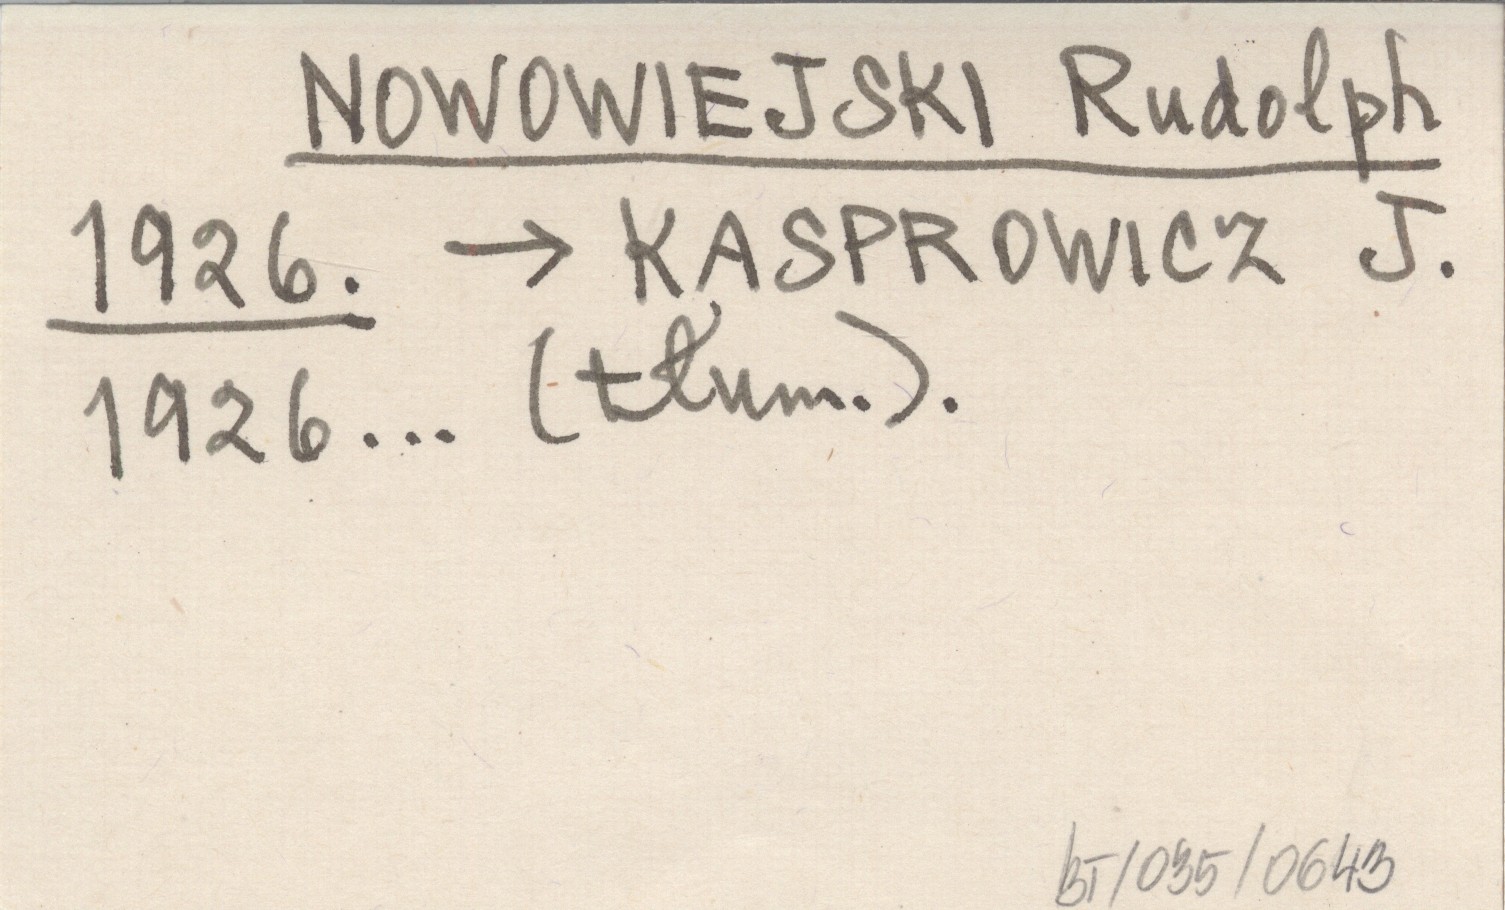 NOWOWIEJSKI Rudolph
1926. → KASPROWICZ J.
1926... (tłum.).
BT/035/0643